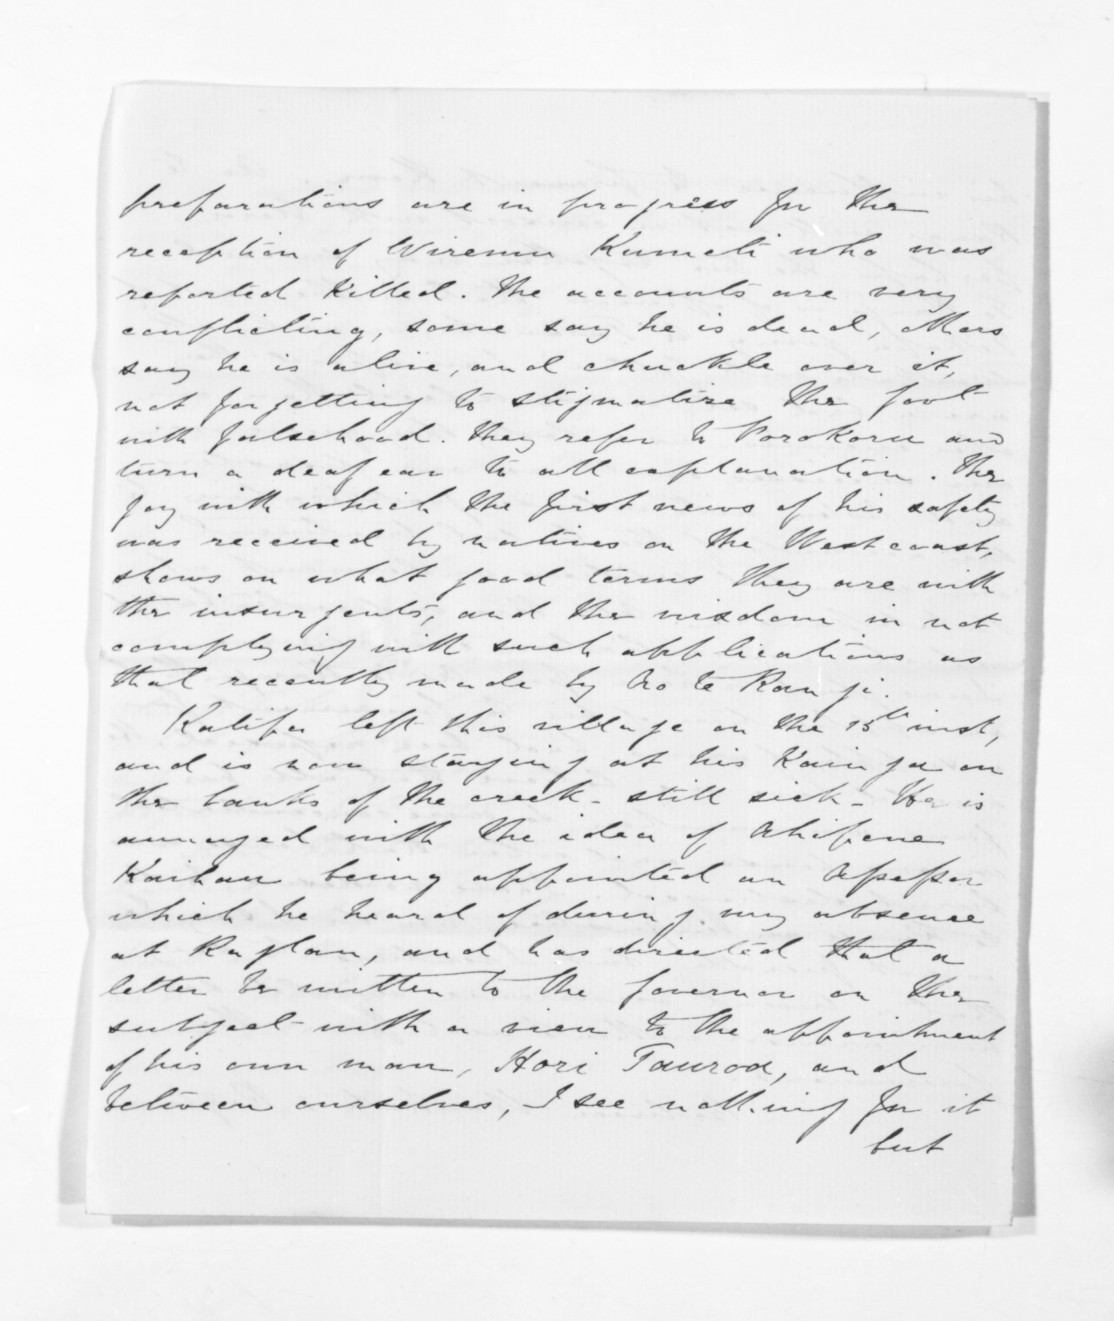 preparations are in progress for the
reception of Wiremu Kumeti who was
reported killed. The accounts are very
conflicting, some say he is dead, others
say he is alive, and chuckle over it,
not forgetting to stigmatize the Govt
with falsehood. They refer to Porokoru and
turn a deaf ear to all explanation. The
joy with which the first news of his safety
was received by natives on the West coast,
shows on what good terms they are with
the insurgents, and the wisdom in not
complying with such applications as
that recently made by Ao te Rangi.
Katipa left this village on the 15th inst,
and is now staying at his Kainga on
the banks of the creek - still sick - He is
annoyed with the idea of Ahipene
Kaihau being appointed an Assessor
which he heard of during my absence
at Raglan, and has directed that a
letter be written to the Governor on the
subject with a view to the appointment
of his own man, Hori Tauroa, and
between ourselves, I see nothing for it
but